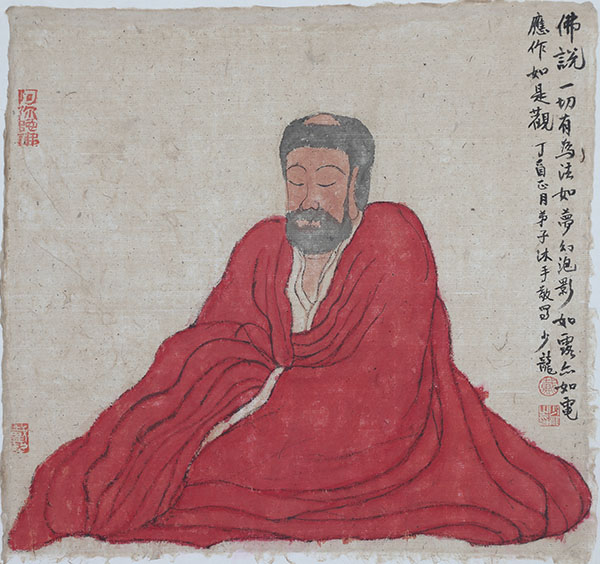 佛說一切有為法如夢幻泡影如露亦如電
應作如是觀 丁酉正月弟子沐手敬寫 少龍
阿弥陀佛